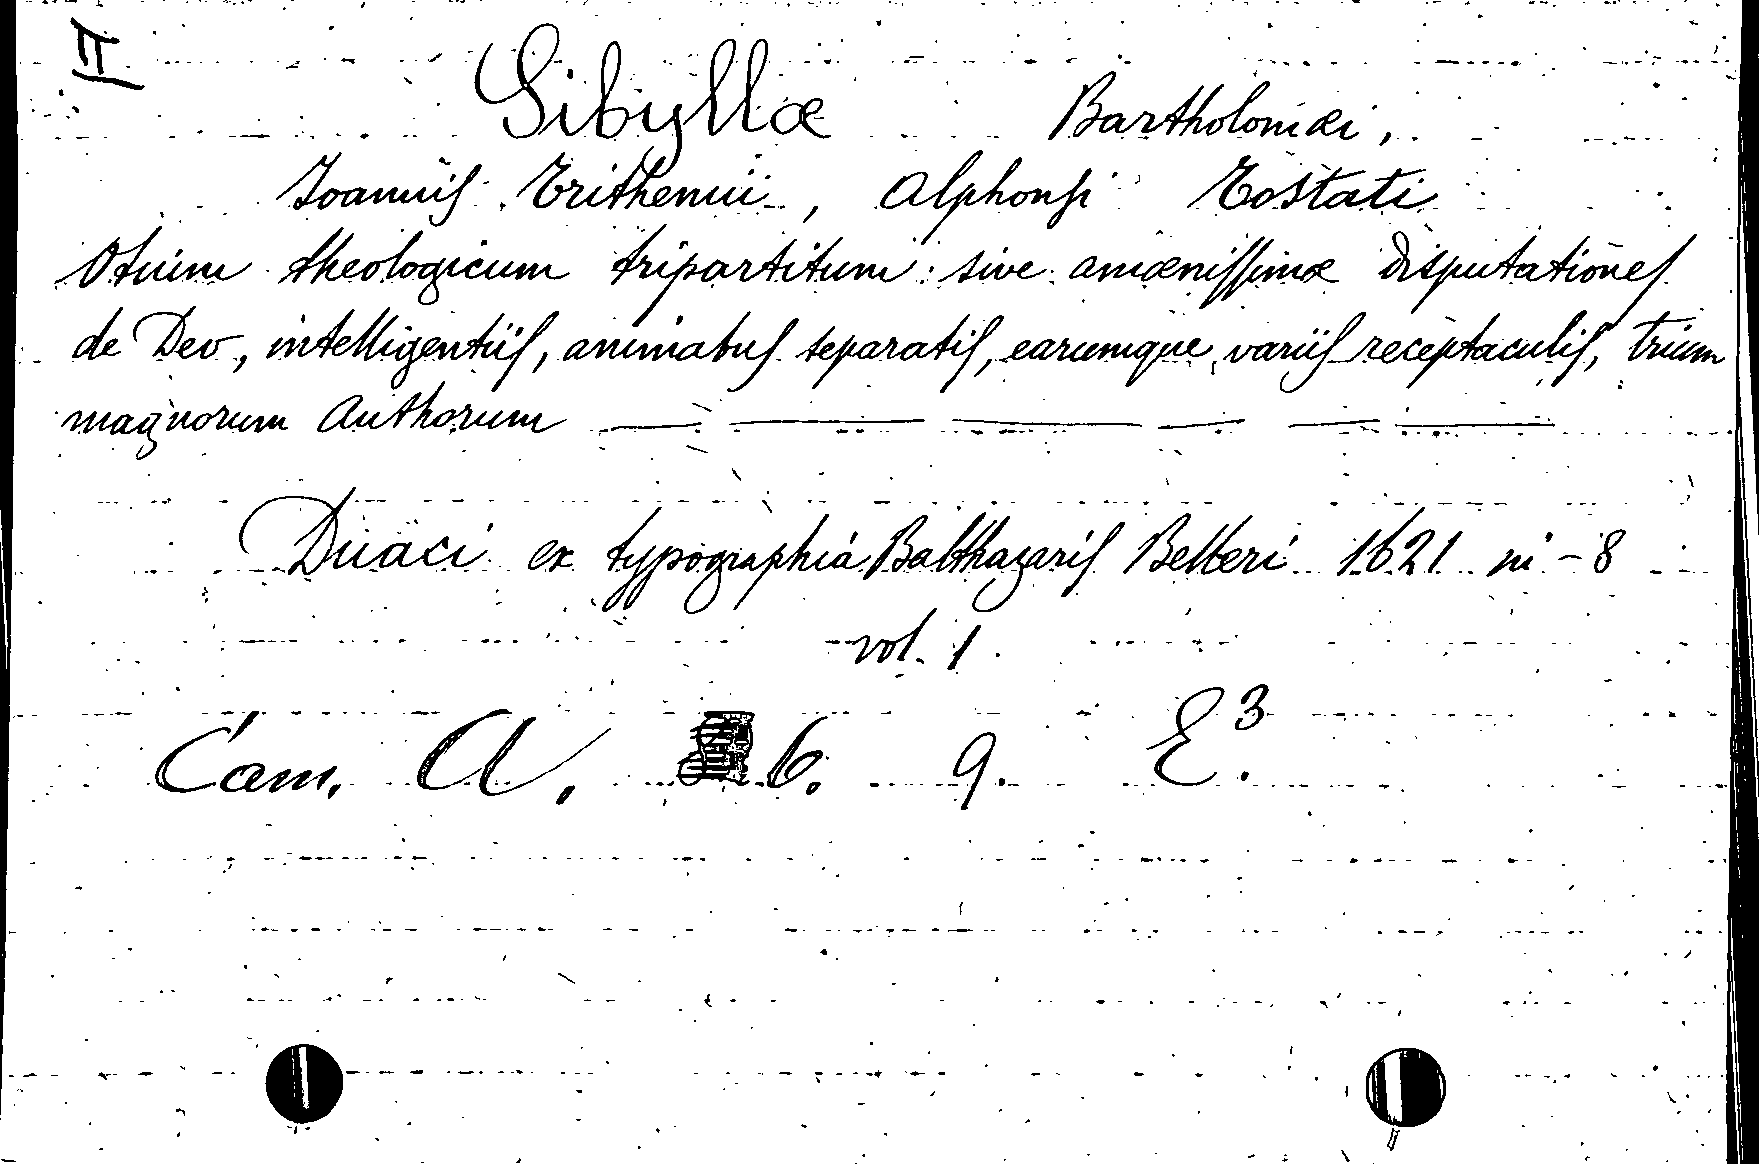 II
Sibyllæ Bartholomæi,
Joannis Trithemii, Alphonsi Tostati
Otium theologicum tripartitum: sive amænissimæ disputationes
de Deo, intelligentiis, animabus separatis, earumque variis receptaculis, trium
magnorum Authorum
Duaci ex typographia Balthazaris Belleri 1621 in-8
vol. 1.
Cam. A. 6. 9. E³.